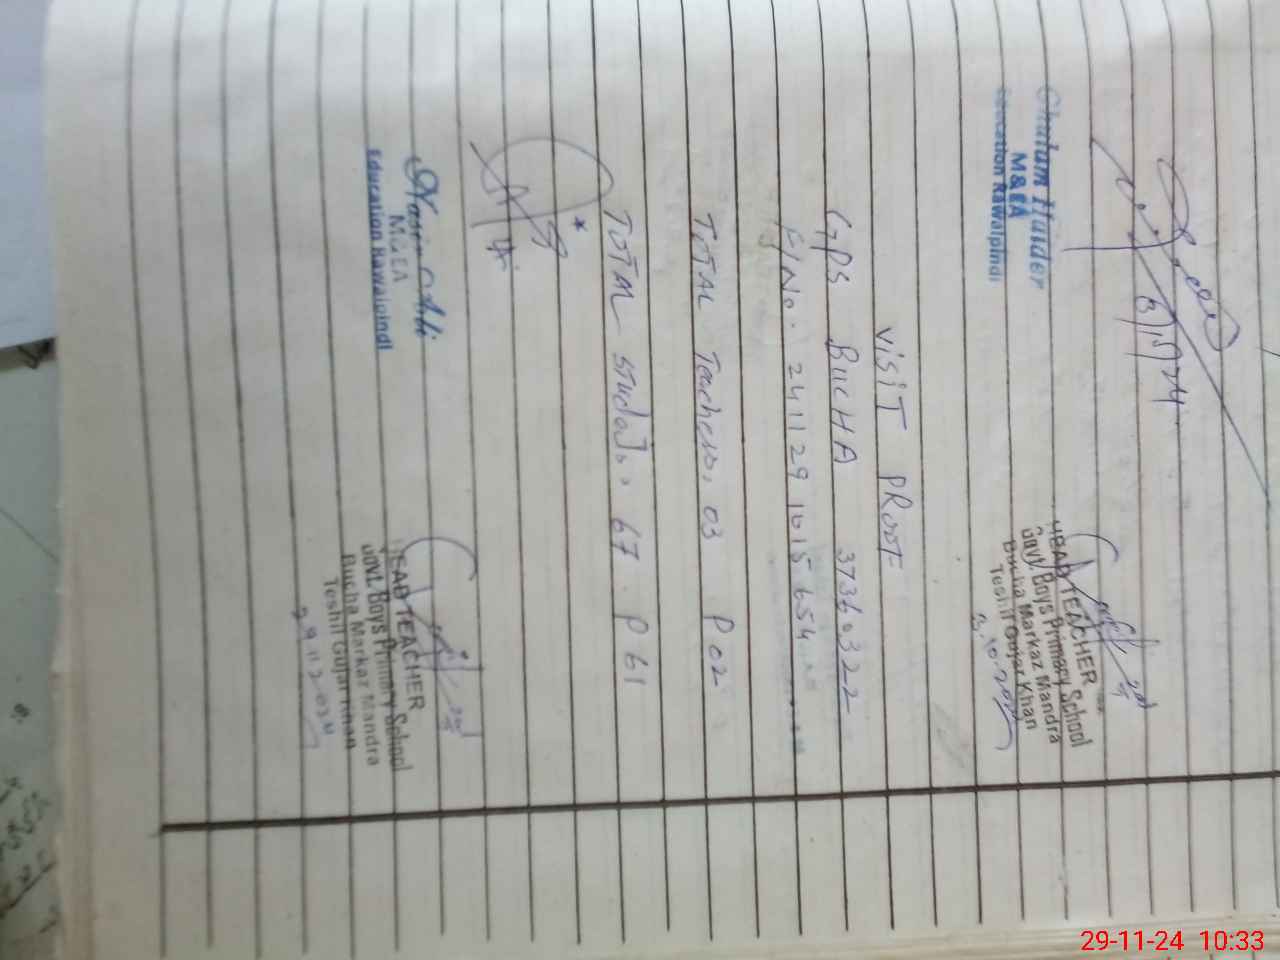 Ghulam Haider
M&EA
Education Rawalpindi
HEAD TEACHER
Govt. Boys Primary School
Bucha Markaz Mandra
Teshil Gujar Khan
VISIT PROOF
GPS BUCHA 37360322
F/No. 241129 1015 654
TOTAL Teachers, 03 P 02
TOTAL students, 67. P 61
M&EA
Education Rawalpindi
HEAD TEACHER
Govt. Boys Primary School
Bucha Markaz Mandra
Teshil Gujar Khan
29.11.2024
29-11-24 10:33